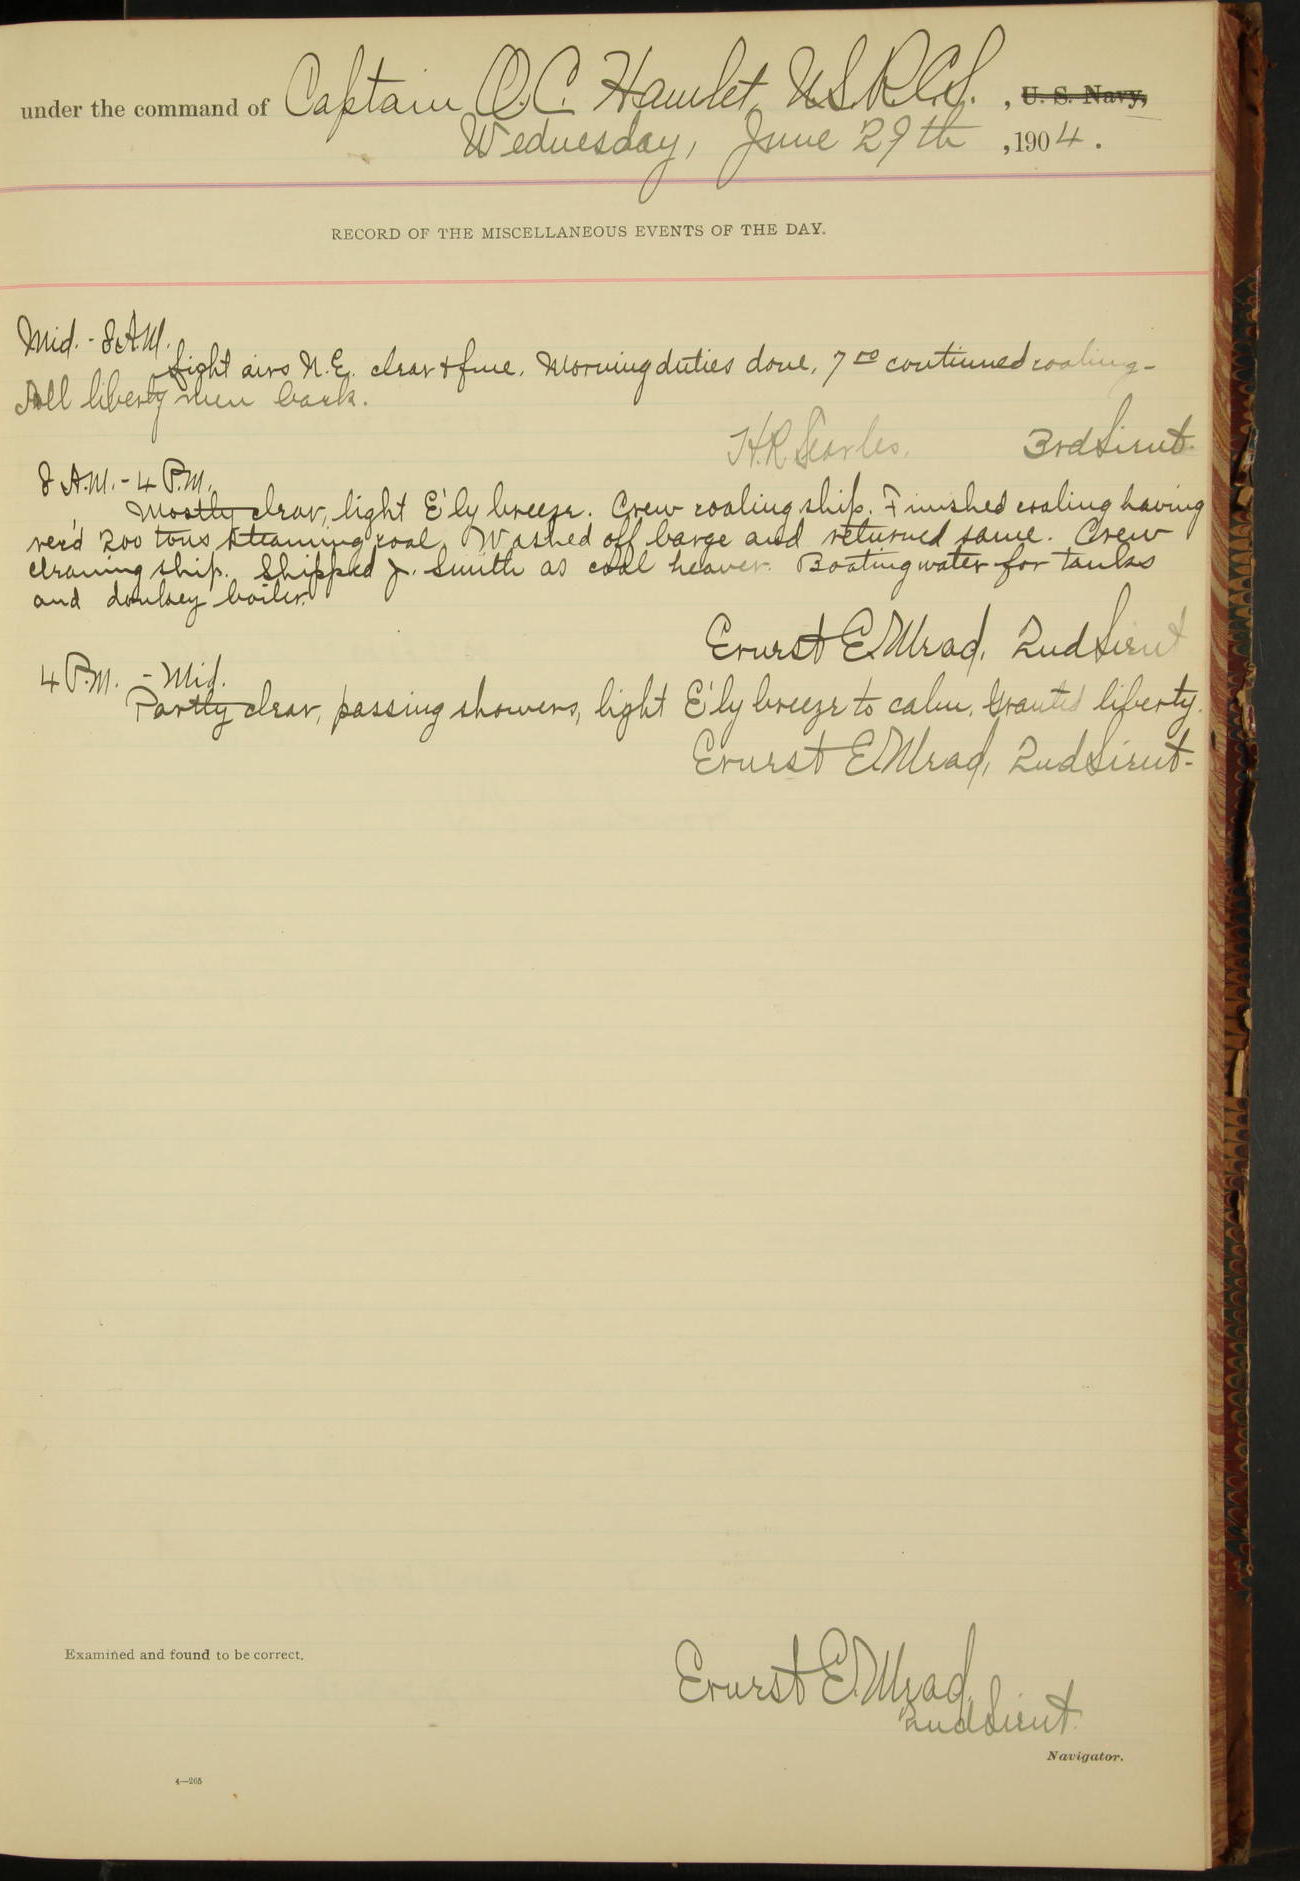 under the command of Captain O.C. Hamlet, U.S.R.C.S. , U. S. Navy,
Wednesday, June 29th , 1904.
RECORD OF THE MISCELLANEOUS EVENTS OF THE DAY.
Mid. - 8 A.M.
Light airs N.E. clear & fine. Morning duties done, 7 00 continued coaling -
All liberty men back.
H.R. Searles. 3rd Lieut.
8 A.M. - 4 P.M.
Mostly clear, light E'ly breeze. Crew coaling ship. Finished coaling having
rec'd 200 tons steaming coal. Washed off barge and returned same. Crew
cleaning ship. Shipped J. Smith as coal heaver. Boating water for tanks
and donkey boiler.
Ernest E. Mead, 2nd Lieut
4 P.M. - Mid.
Partly clear, passing showers, light E'ly breeze to calm. Granted liberty.
Ernest E. Mead, 2nd Lieut-
Examined and found to be correct.
Ernest E. Mead,
2nd Lieut.
Navigator.
4—265